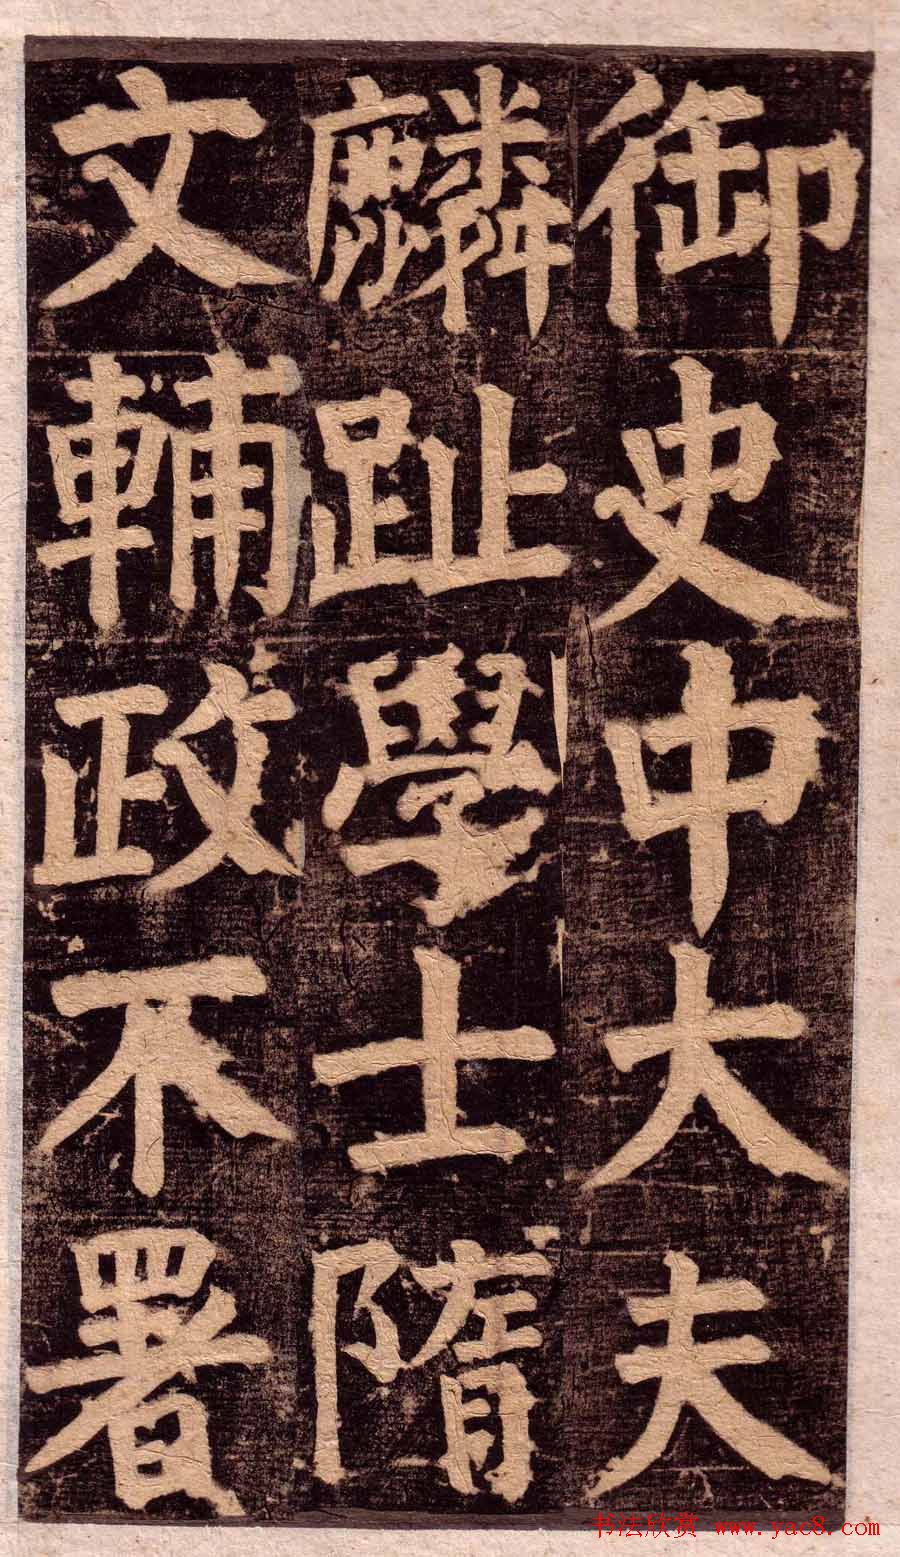 御史中大夫
麟趾學士隋
文輔政不署
书法欣赏 www.yac8.com